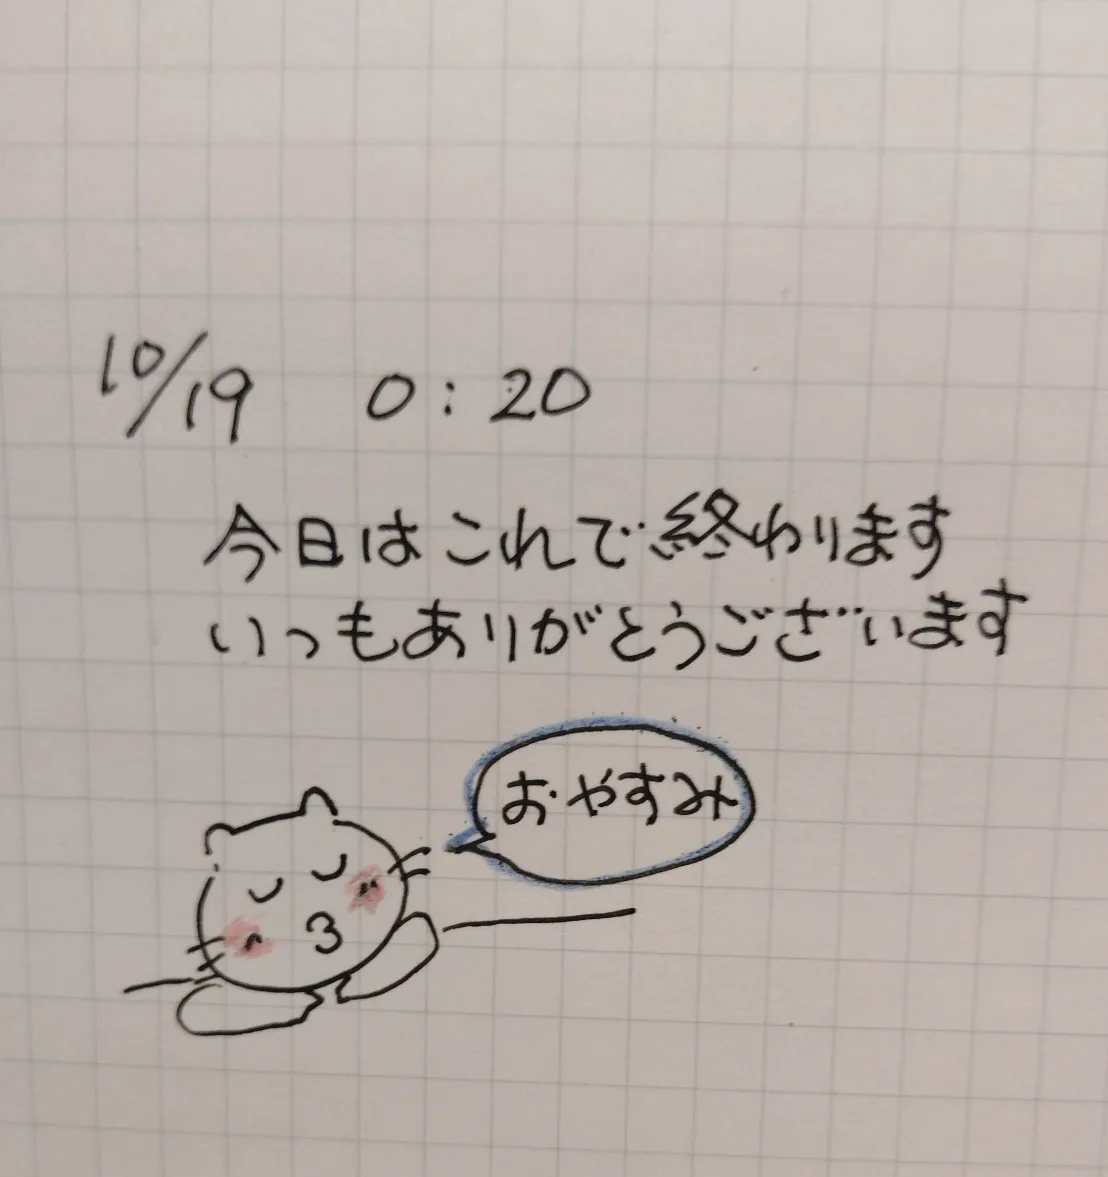 10/19 0:20
今日はこれで終わります
いつもありがとうございます
おやすみ